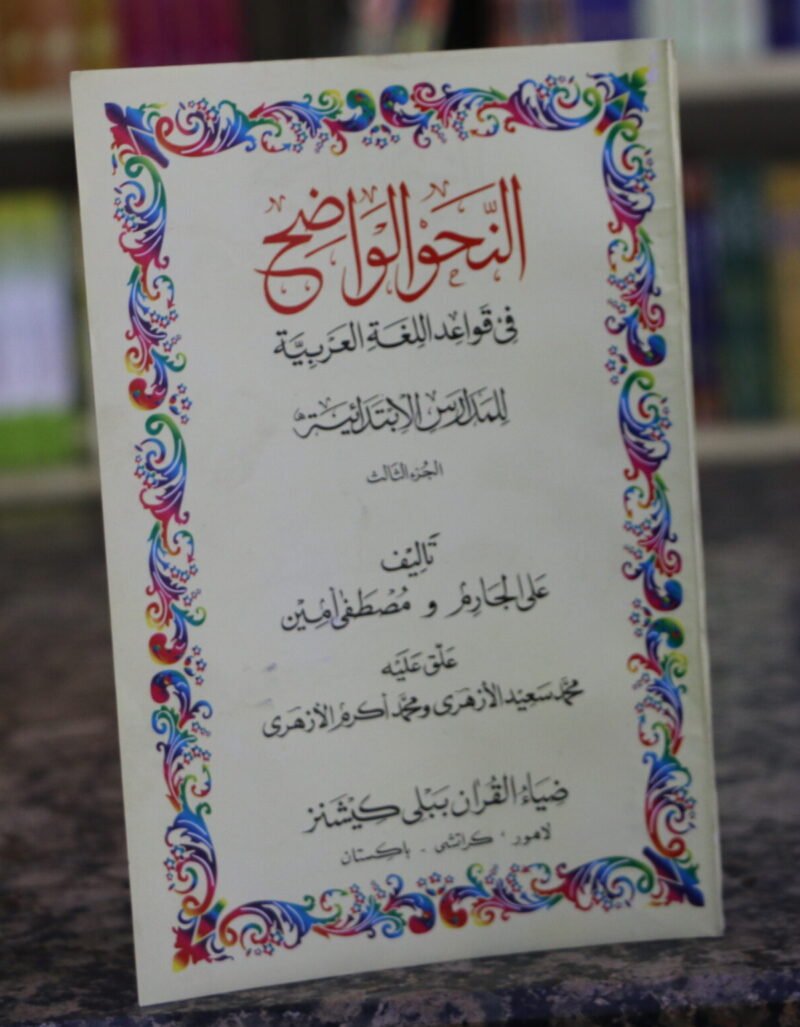 النَّحْوُ الْوَاضِحُ
فِیْ قَوَاعِدِ اللُّغَةِ الْعَرَبِيَّة
لِلْمَدَارِسِ الْاِبْتَدَائِيَّةِ
الجُزء الثَّالث
تَالِيْف
عَلی الْجَارِمْ وَ مُصْطَفٰی اَمِيْن
عَلَّقَ عَلَيْه
محمَّد سَعِيْد الأزهَری و محمَّد أكرمُ الأزهَری
ضِيَاءُ الْقُرْآن پبلی كيشَنز
لاهور ، كراتشی - باكستان